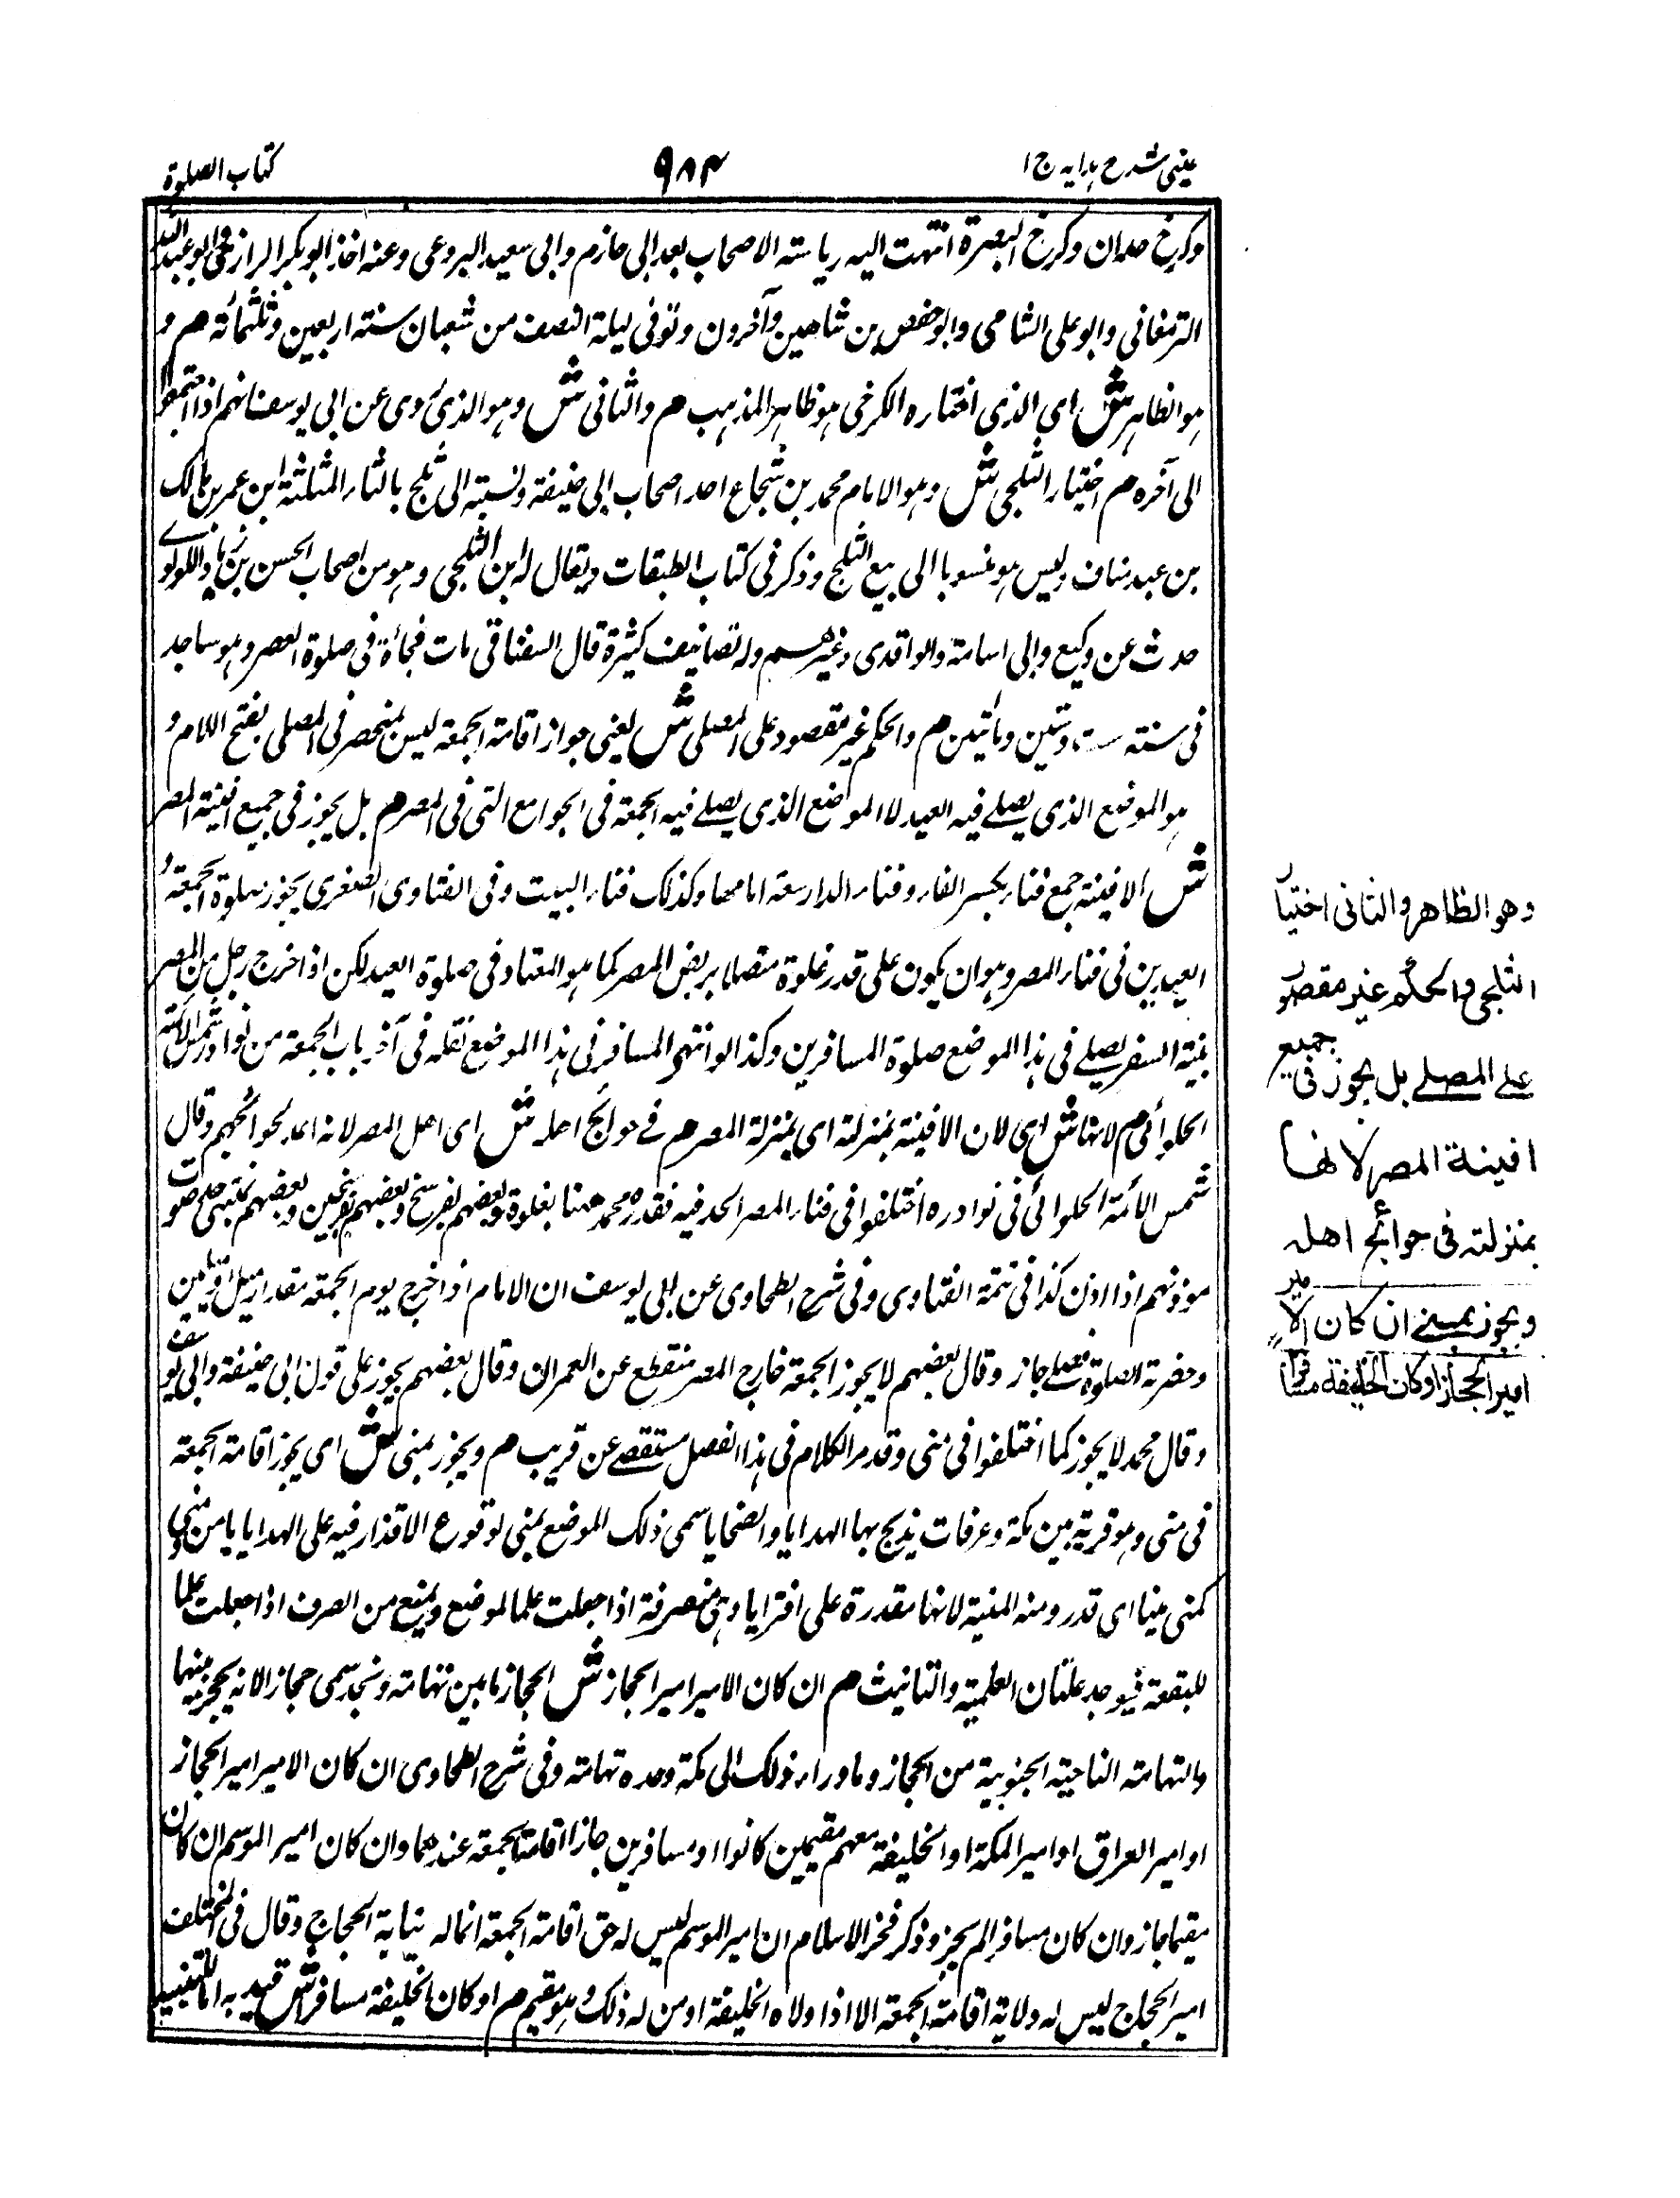 عينى شرح هدايه ج ١
٩٨٤
كتاب الصلوة
وكرخ جدان وكرخ البصرة انتهت اليه رياسته الاصحاب بعد ابى حازم وابى سعيد البروعى وعنه اخذ ابو بكر الرازى وابو عبد الله
الترمغانى وابو على الشامى وابو حفص بن شاهين وآخرون وتوفى ليلة النصف من شعبان سنته اربعين وثلثمائة هـ م و
هو الظاهر ش اى الذى اختاره الكرخى هو ظاهر المذهب م والثانى ش وهو الذى روى عن ابى يوسف انهم اذا اجتمعوا
الى آخره م اختيار الثلجى ش وهو الامام محمد بن شجاع احد اصحاب ابى حنيفة ونسبته الى ثلج بالثاء المثلثة ابن عمر بن مالك
بن عبد مناف وليس هو منسوبا الى بيع الثلج وذكر فى كتاب الطبقات ويقال له ابن الثلجى وهو من اصحاب الحسن بن زياد اللولوى
حدث عن وكيع وابى اسامة والواقدى وغيرهم وله تصانيف كثيرة قال السغناقى مات فجأة فى صلوة العصر وهو ساجد
فى سنته ست وستين ومأتين م والحكم غير مقصود على المصلى ش يعنى جواز اقامة الجمعة ليس بمنحصر فى المصلى بفتح اللام و
هو الموضع الذى يصلے فيه العيد لا الموضع الذى يصلے فيه الجمعة فى الجوامع التى فى المصر م بل يجوز فى جميع افنية المصر
ش الافنية جمع فناء بكسر الفاء وفناء الدار سعة امامها وكذلك فناء البيت وفى الفتاوى الصغرى يجوز صلوة الجمعة و
العيدين فى فناء المصر وهو ان يكون على قدر غلوة متصلا بربض المصر كما هو المعتاد فى صلوة العيد لكن اذا خرج رجل من المصر
بنية السفر يصلے فى هذا الموضع صلوة المسافرين وكذا لو انتهى المسافر فى هذا الموضع نقله فى آخر باب الجمعة من نوادر شمس الائمة
الحلوائى م لانها ش اى لان الافنية بمنزلته اى بمنزلة المصر م فے حوائج اهله ش اى اهل المصر لانه اعد لحوائجهم وقال
شمس الائمة الحلوائى فى نوادره اختلفوا فى فناء المصر الحد فيه فقدره محمد هنا بغلوة وبعضهم بفرسخ وبعضهم بفرسخين وبعضهم بمنتهى صوت
موذنهم اذا اذن كذا فى تتمة الفتاوى وفى شرح الطحاوى عن ابى يوسف ان الامام اذا خرج يوم الجمعة مقدار ميل او ميلين
وحضرته الصلوة فصلے جاز وقال بعضهم لا يجوز الجمعة خارج المصر منقطع عن العمران وقال بعضهم يجوز على قول ابى حنيفة وابى يوسف
وقال محمد لا يجوز كما اختلفوا فى منى وقد مر الكلام فى هذا الفصل مستقصے عن قريب م ويجوز بمنى ش اى يجوز اقامة الجمعة
فى منى وهو قرية بين مكة وعرفات يذبح بها الهدايا والضحايا سمى ذلك الموضع بمنى لوقوع الاقذار فيه على الهدايا يا من منى
كمنى منيا اى قدر ومنه المنية لانها مقدرة على افترايا وهى منصرفة اذا جعلت علما لموضع ويمنع من الصرف اذا جعلت علما
للبقعة فيوجد علتان العلمية والتانيث م ان كان الامير امير الحجاز ش الحجاز ما بين تهامته ونجد سمى حجازا لانه يحجز بينهما
والتهامته الناحية الجنوبية من الحجاز وما وراء ذلك الى مكة وحده تهامته وفى شرح الطحاوى ان كان الامير امير الحجاز
او امير العراق او امير المكة او الخليفة معهم مقيمين كانوا او مسافرين جاز اقامة الجمعة عندهما وان كان امير الموسم ان كان
مقيما جاز وان كان مسافرا لم يجز وذكر فخر الاسلام ان امير الموسم ليس له حق اقامة الجمعة انما له نيابة الحجاج وقال فى المختلف
امير الحجاج ليس له ولاية اقامة الجمعة الا اذا ولاه الخليفة او من له ذلك وهو مقيم م او كان الخليفة مسافرا ش قيد به اما للتنبيه
وهو الظاهر والثانى اختيار
الثلجى والحكم غير مقصور
على المصلے بل يجوز فى جميع
افنية المصر لانها
بمنزلته فى حوائج اهله
ويجوز بمنے ان كان الامير
امير الحجاز او كان الخليفة مسافرا